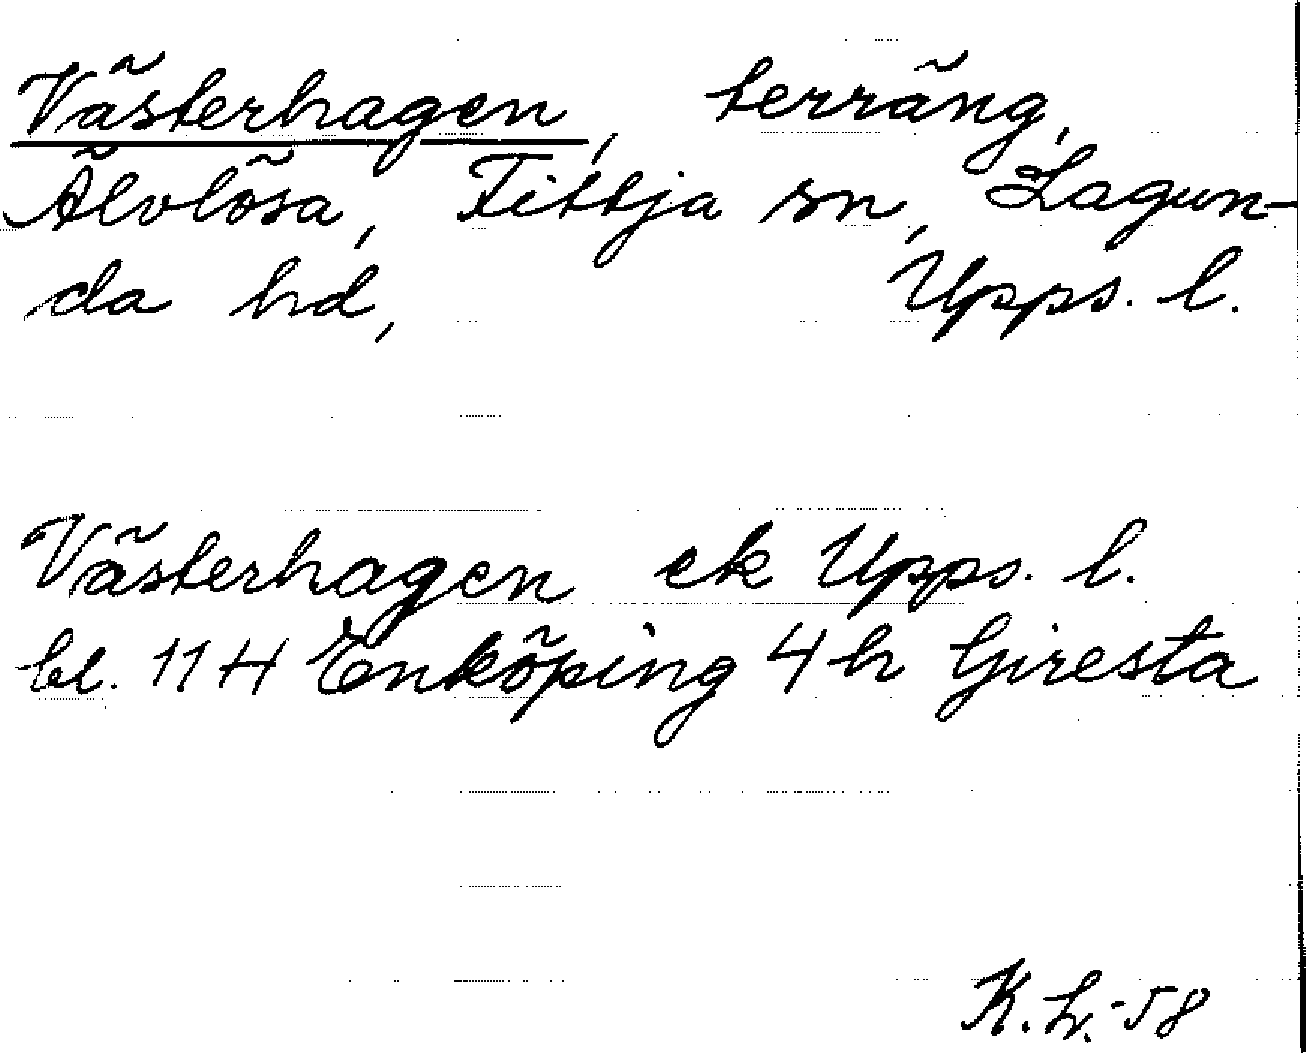 Västerhagen, terräng,
Älvlösa, Fittja sn, Lagun-
da hd, Upps. l.
Västerhagen ek Upps. l.
bl. 11 H Enköping 4 h Giresta
K. H. -58